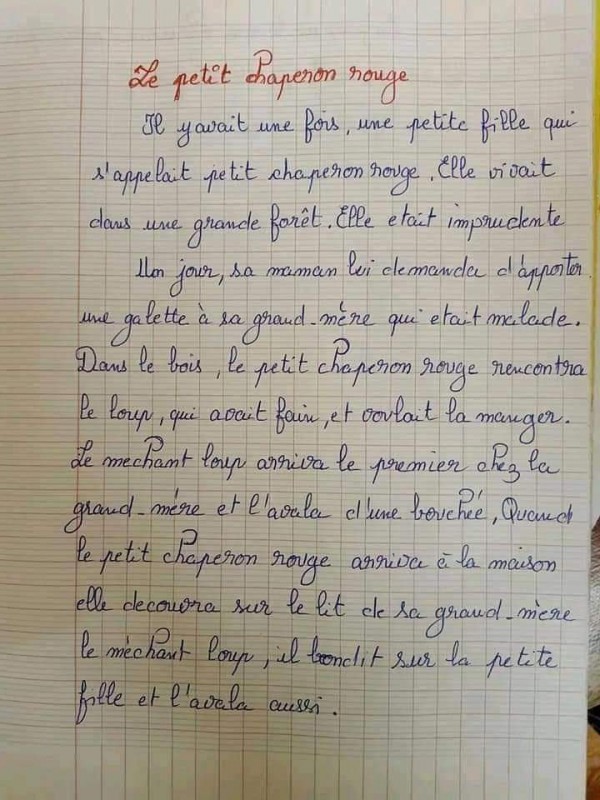 Le petit chaperon rouge
Il y avait une fois, une petite fille qui
s'appelait petit chaperon rouge. Elle vivait
dans une grande forêt. Elle etait imprudente
Un jour, sa maman lui demanda d'apporter
une galette à sa grand-mère qui etait malade.
Dans le bois, le petit chaperon rouge rencontra
le loup, qui avait faim, et voulait la manger.
Le mechant loup arriva le premier chez la
grand-mère et l'avala d'une bouchée, Quand
le petit chaperon rouge arriva à la maison
elle decouvra sur le lit de sa grand-mère
le mèchant loup, il bondit sur la petite
fille et l'avala aussi.